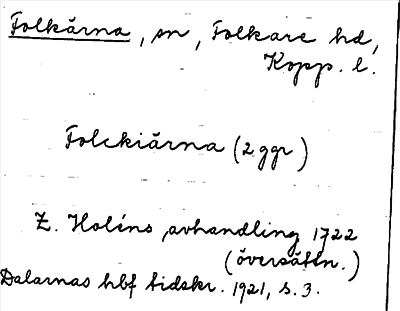 Folkärna, sn, Folkare hd,
Kopp. l.
Folckiärna (2 ggr)
Z. Holéns avhandling 1722
(översättn.)
Dalarnas hbf tidskr. 1921, s. 3.